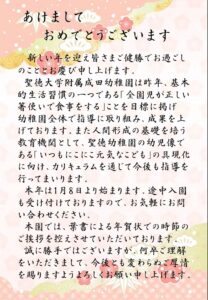 あけまして
おめでとうございます
新しい年を迎え皆さまご健勝でお過ごし
のこととお慶び申し上げます。
聖徳大学附属成田幼稚園は昨年、基本
的生活習慣の一つである「全園児が正しい
箸使いで食事をする」ことを目標に掲げ
幼稚園全体で指導に取り組み、成果を上
げております。また人間形成の基礎を培う
教育機関として、聖徳幼稚園の幼児像で
ある「いつもにこにこ元気なこども」の具現化
に向け、カリキュラムを通じて今後も指導を
行ってまいります。
本年は1月8日より始まります。途中入園
も受け付けておりますので、お気軽にお問
い合わせください。
本園では、葉書による年賀状での時節の
ご挨拶を控えさせていただいております。
誠に勝手ではございますが、何卒ご理解
をいただきまして、今後とも変わらぬご厚情
を賜りますようよろしくお願い申し上げます。